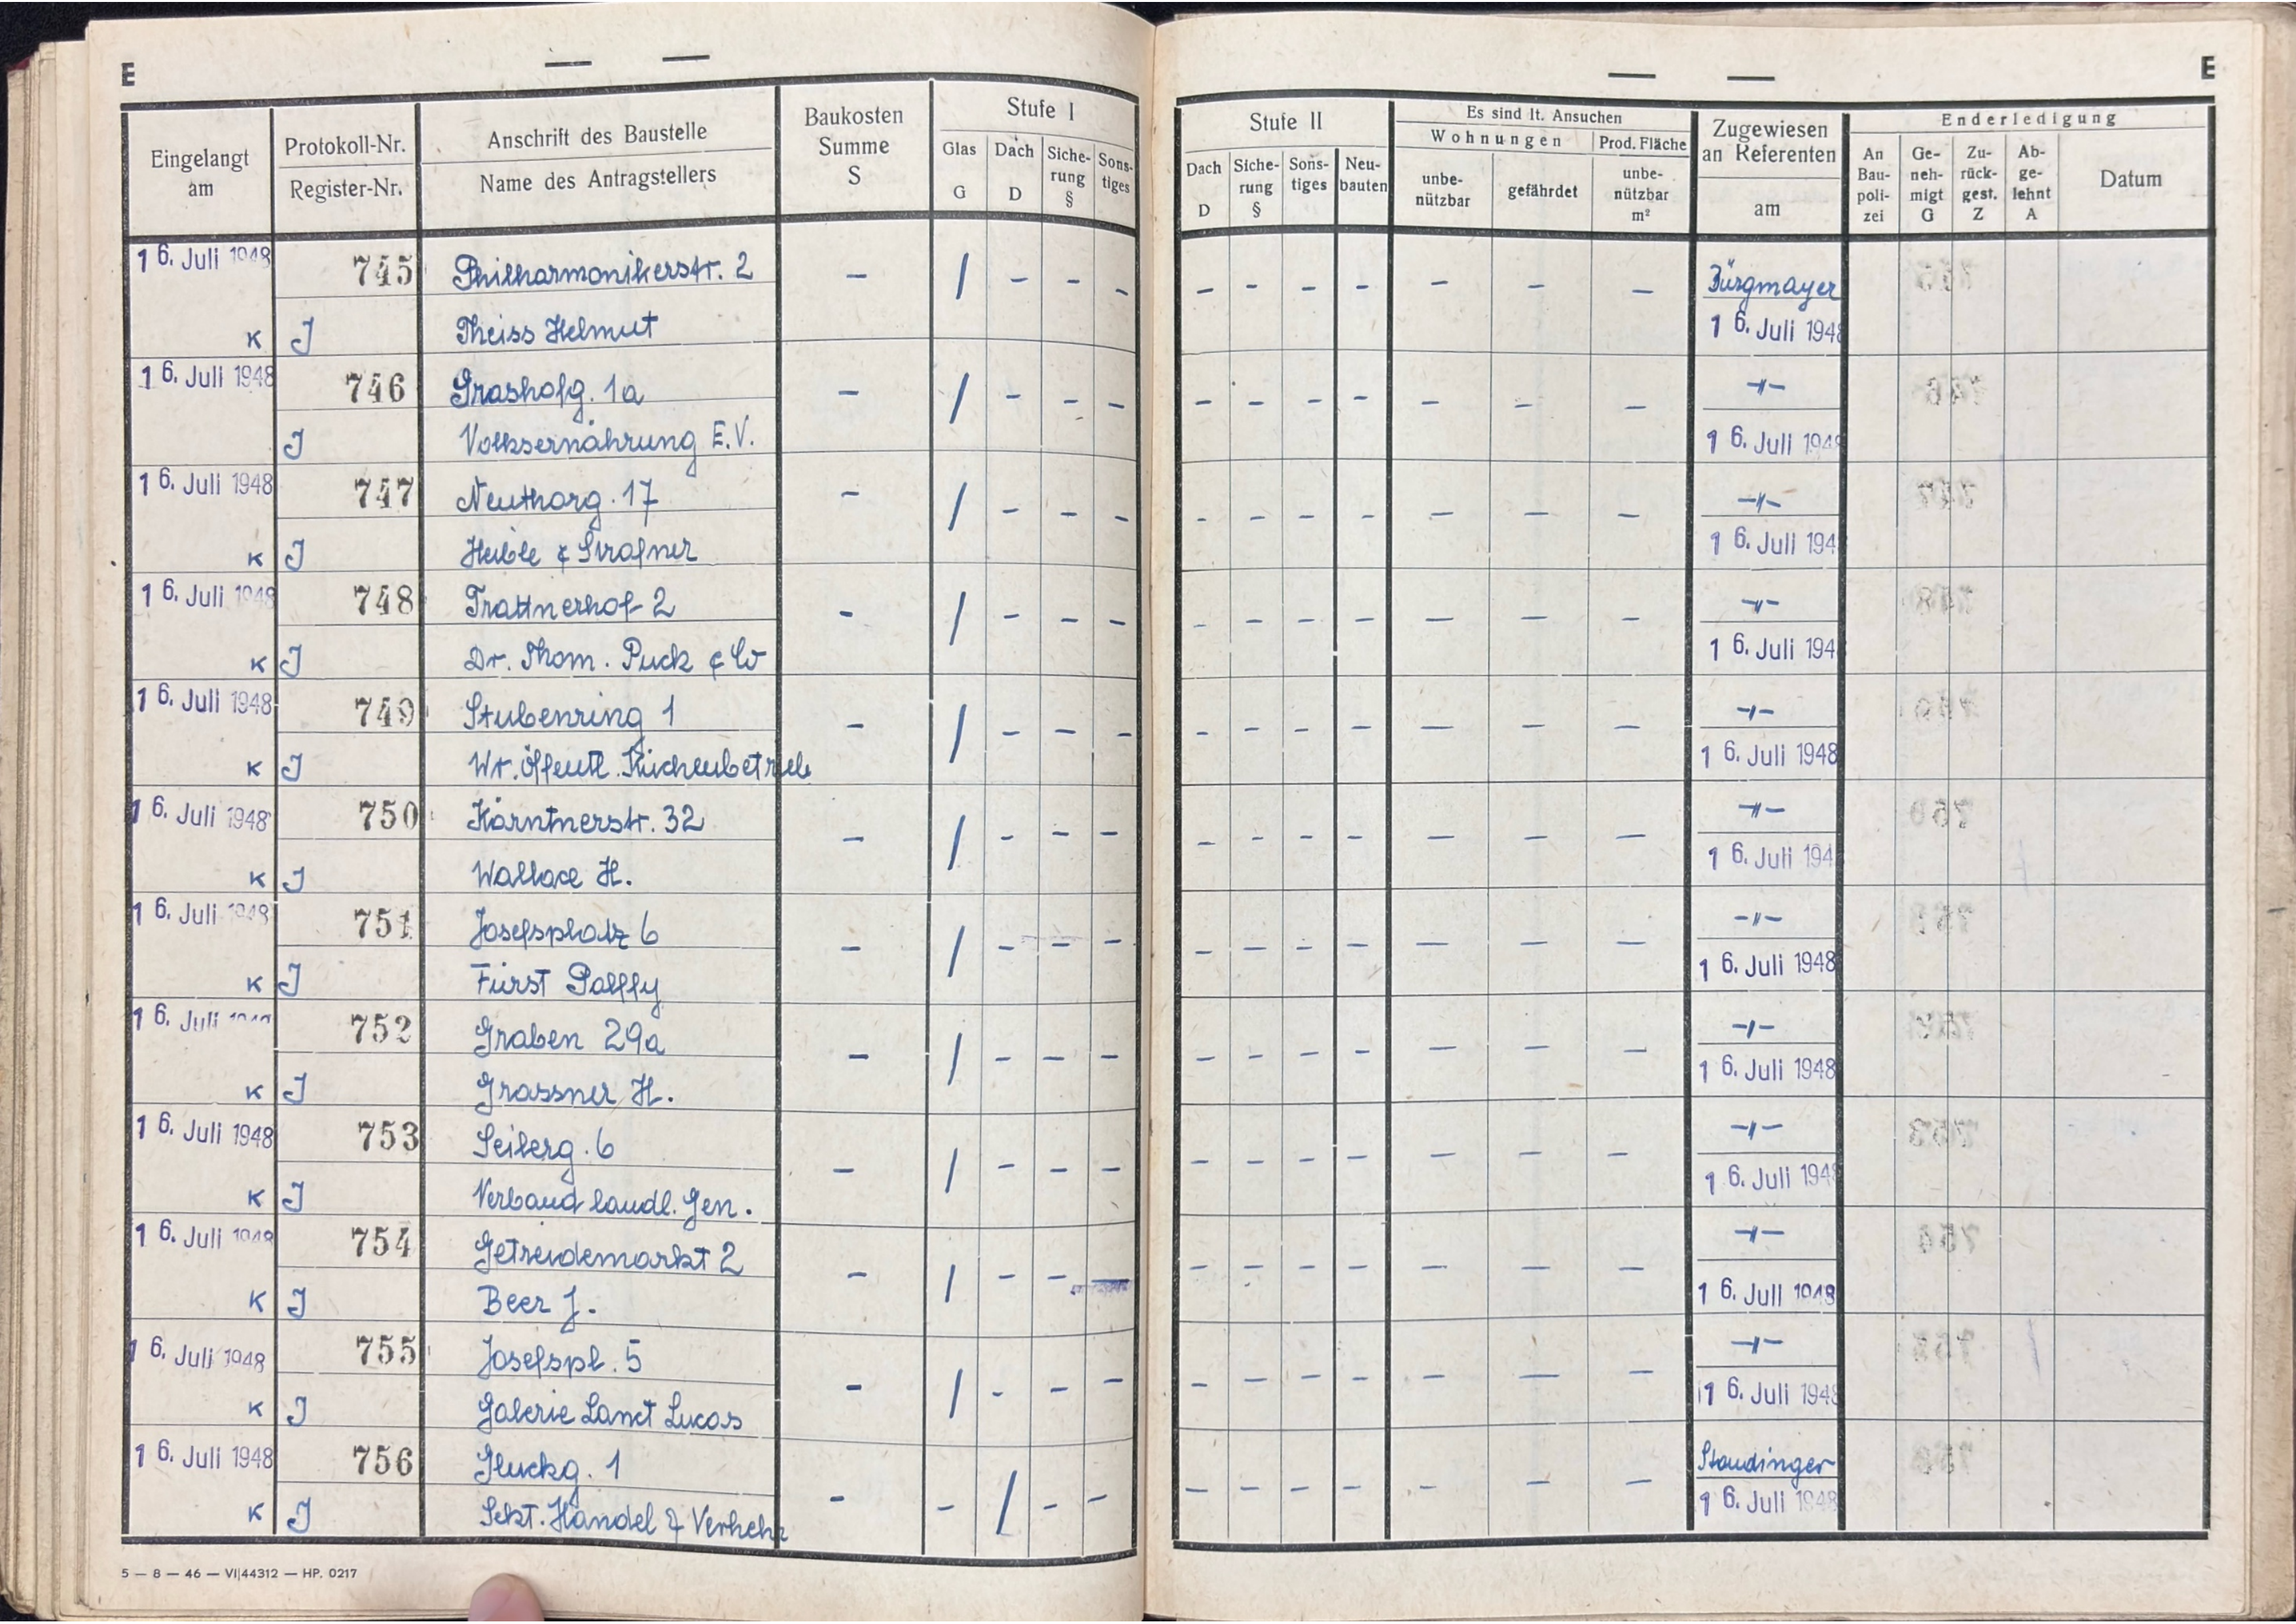 E — — — — E
Eingelangt am | Protokoll-Nr. | Anschrift des Baustelle | Baukosten Summe S | Stufe I | Stufe II | Es sind lt. Ansuchen | Zugewiesen an Referenten | Enderledigung
Register-Nr. | Name des Antragstellers | Glas G | Dach D | Siche-rung § | Sons-tiges | Dach D | Siche-rung § | Sons-tiges | Neu-bauten | Wohnungen | unbe-nützbar | gefährdet | Prod. Fläche unbe-nützbar m² | am | An Bau-poli-zei | Ge-neh-migt G | Zu-rück-gest. Z | Ab-ge-lehnt A | Datum
16. Juli 1948 | 745 | Philharmonikerstr. 2 | – | / | – | – | – | – | – | – | – | – | – | – | Bürgmayer
K | J | Theiss Helmut | 16. Juli 1948
16. Juli 1948 | 746 | Grashofg. 1a | – | / | – | – | – | – | – | – | – | – | – | – | –"–
J | Volksernährung E.V. | 16. Juli 1948
16. Juli 1948 | 747 | Neuthorg. 17 | – | / | – | – | – | – | – | – | – | – | – | – | –"–
K | J | Heible & Strafner | 16. Juli 194
16. Juli 1948 | 748 | Trattnerhof 2 | – | / | – | – | – | – | – | – | – | – | – | – | –"–
K | J | Dr. Thom. Puck & Co | 16. Juli 194
16. Juli 1948 | 749 | Stubenring 1 | – | / | – | – | – | – | – | – | – | – | – | – | –"–
K | J | Wr. öffentl. Küchenbetrieb | 16. Juli 1948
16. Juli 1948 | 750 | Kärntnerstr. 32 | – | / | – | – | – | – | – | – | – | – | – | – | –"–
K | J | Wallace H. | 16. Juli 194
16. Juli 1948 | 751 | Josefsplatz 6 | – | / | – | – | – | – | – | – | – | – | – | – | –"–
K | J | Fürst Palffy | 16. Juli 1948
16. Juli 1948 | 752 | Graben 29a | – | / | – | – | – | – | – | – | – | – | – | – | –"–
K | J | Grassner H. | 16. Juli 1948
16. Juli 1948 | 753 | Seilerg. 6 | – | / | – | – | – | – | – | – | – | – | – | – | –"–
K | J | Verband landl. Gen. | 16. Juli 1948
16. Juli 1948 | 754 | Getreidemarkt 2 | – | / | – | – | – | – | – | – | – | – | – | – | –"–
K | J | Beer J. | 16. Juli 1948
16. Juli 1948 | 755 | Josefspl. 5 | – | / | – | – | – | – | – | – | – | – | – | – | –"–
K | J | Galerie Sanct Lucas | 16. Juli 1948
16. Juli 1948 | 756 | Gluckg. 1 | – | – | / | – | – | – | – | – | – | – | – | – | Staudinger
K | J | Sekt. Handel & Verkehr | 16. Juli 1948
5 — 8 — 46 — VI|44312 — HP. 0217